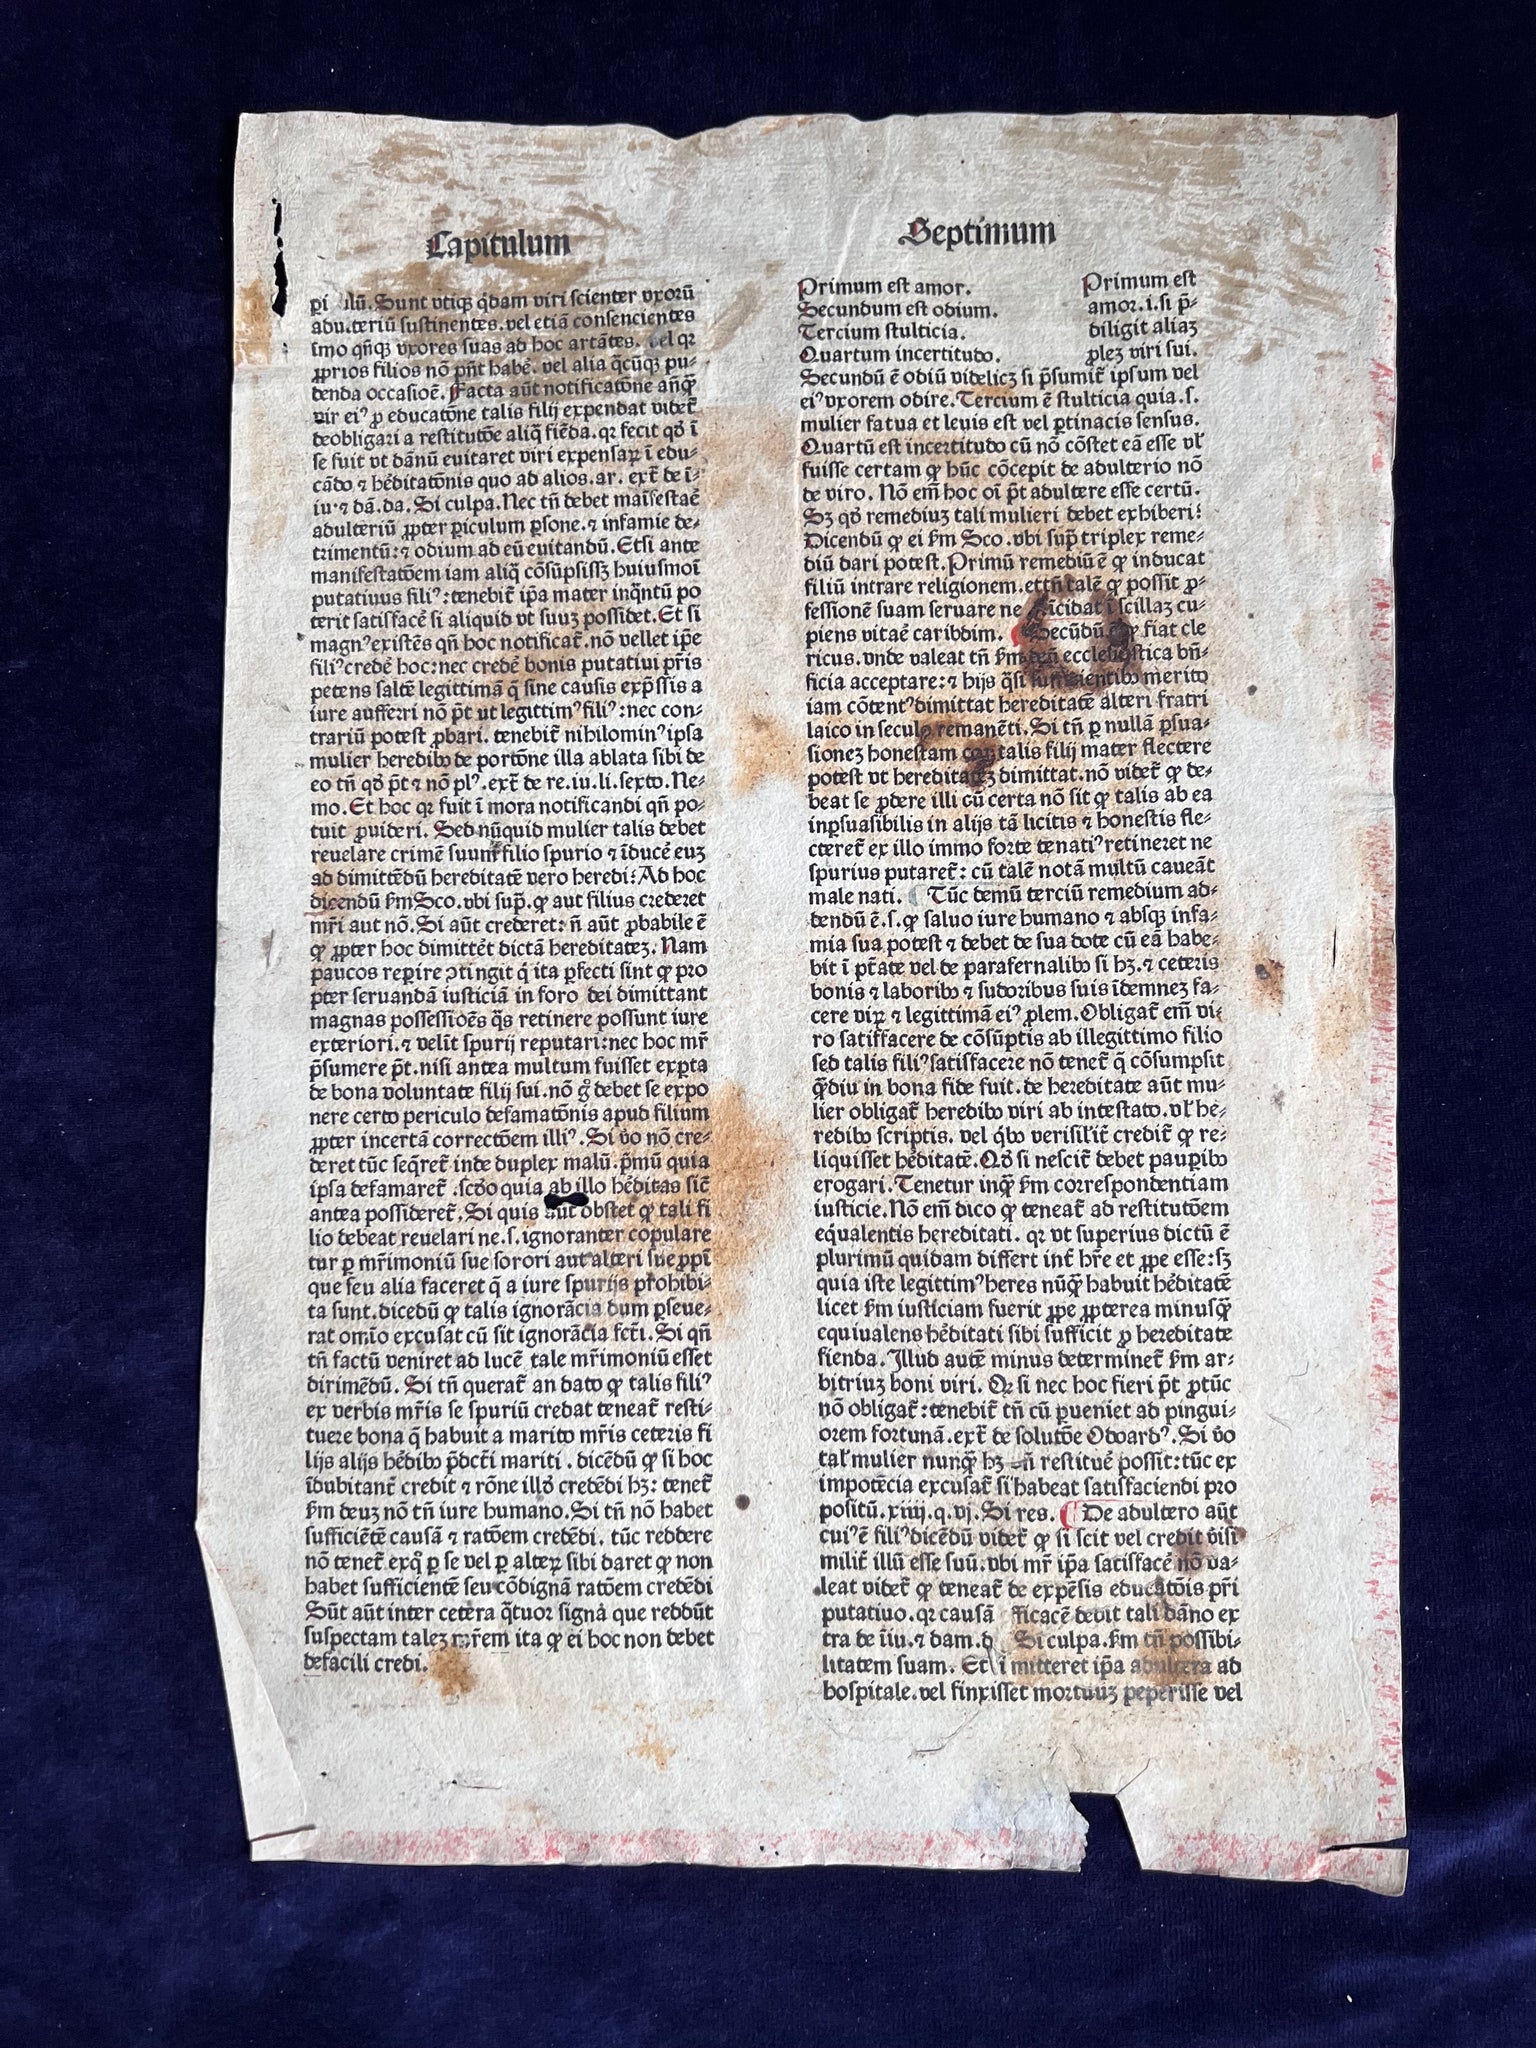 Capitulum
Septimum
Sunt vtiqꝫ q̇dam viri scienter vxorū
adulteriū sustinentes. vel etiā consencientes
īmo qn̄qꝫ vxores suas ad hoc artātes. vel qꝛ
ꝓprios filios nō pn̄t habē. vel alia q̄cūqꝫ pu⸗
denda occasiōe. Facta aūt notificatōne añq̄ꝫ
vir eiꝰ ꝓ educatōne talis filij expendat videt᷑
deobligari a restitutōe aliq̄ fiēda. qꝛ fecit qd̓ ī
se fuit vt dānū euitaret viri expensaꝝ ī edu⸗
cādo ⁊ he̓ditatōnis quo ad alios. ar. ext̄ de ī⸗
iu. ⁊ dā. da. Si culpa. Nec tn̄ debet maīfestaē
adulteriū ꝓpter ꝑiculum ꝑsone. ⁊ infamie de⸗
trimentū: ⁊ odium ad eū euitandū. Etsi ante
manifestatōem iam aliq̄ cōsūpsissꝫ huiusmoī
putatiuus filiꝰ: tenebit᷑ ip̄a mater inq̄ntū po
terit satisfacē si aliquid vt suuꝫ possidet. Et si
magnꝰ existēs qn̄ hoc notificat᷑. nō vellet ip̄e
filiꝰ credē hoc: nec credē bonis putatiui pr̄is
petens saltē legittimā q̄ sine causis exp̄ssis a
iure aufferri nō pt̄ ut legittimꝰ filiꝰ: nec con⸗
trariū potest ꝓbari. tenebit᷑ nihilominꝰ ipsa
mulier heredibꝰ de portōne illa ablata sibi de
eo tn̄ qd̓ pt̄ ⁊ nō plꝰ. ext̄ de re. iu. li. sexto. Ne⸗
mo. Et hoc qꝛ fuit ī mora notificandi qn̄ po⸗
tuit ꝓuideri. Sed nūquid mulier talis debet
reuelare crimē suum filio spurio ⁊ īducē euꝫ
ad dimittēdū hereditatē vero heredi: Ad hoc
dicendū ẜm Sco. vbi sup̄. ꝙ aut filius crederet
mr̄i aut nō. Si aūt crederet: n̄ aūt ꝓbabile ē
ꝙ ꝓpter hoc dimittēt dictā hereditateꝫ. Nam
paucos reꝑire ꝯtingit q̇ ita ꝑfecti sint ꝙ pro
pter seruandā iusticiā in foro dei dimittant
magnas possessiōes q̄s retinere possunt iure
exteriori. ⁊ velīt spurij reputari: nec hoc mr̄
p̄sumere pt̄. nisi antea multum fuisset expta
de bona voluntate filij sui. nō g̊ debet se expo
nere certo periculo defamatōnis apud filium
ꝓpter incertā correctōem illiꝰ. Si v̊o nō cre⸗
deret tūc seq̄ret᷑ inde duplex malū. p̄mū quia
ipsa defamaret᷑. scd̓o quia ab illo he̓ditas sic̄
antea possideret᷑. Si quis aūt obstet ꝙ tali fi
lio debeat reuelari ne. s. ignoranter copulare
tur ꝑ mr̄imoniū sue sorori aut alteri sue ꝓpī
que seu alia faceret q̄ a iure spurijs prohibi⸗
ta sunt. dicēdū ꝙ talis ignorācia dum ꝑseue⸗
rat om̄io excusat cū sit ignorācia fc̄ti. Si qn̄
tn̄ factū veniret ad lucē tale mr̄imoniū esset
dirimēdū. Si tn̄ querat᷑ an dato ꝙ talis filiꝰ
ex verbis mr̄is se spuriū credat teneat᷑ resti⸗
tuere bona q̄ habuit a marito mr̄is ceteris fi
lijs alijs he̓dibꝰ p̄dc̄ti mariti. dicēdū ꝙ si hoc
īdubitant̄ credit ⁊ rōne illd̓ credēdi hꝫ: tenet᷑
ẜm deuꝫ nō tn̄ iure humano. Si tn̄ nō habet
sufficiētē causā ⁊ ratōem credēdi. tūc reddere
nō tenet᷑ exq̊ ꝑ se vel ꝑ alteꝝ sibi daret ꝙ non
habet sufficientē seu cōdignā ratōem credēdi
Sūt aūt inter cetera q̄tuor signa que reddūt
suspectam taleꝫ mr̄em ita ꝙ ei hoc non debet
defacili credi.
Primum est amor.
Secundum est odium.
Tercium stulticia.
Quartum incertitudo.
Primum est
amor. i. si p̄⸗
diligit aliaꝫ
ꝓleꝫ viri sui.
Secundū ē odiū videlicꝫ si p̄sumit᷑ ipsum vel
eiꝰ vxorem odire. Tercium ē stulticia quia. s.
mulier fatua et leuis est vel ꝑtinacis sensus.
Quartū est incertitudo cū nō cōstet eā esse vl̓
fuisse certam ꝙ hūc cōcepit de adulterio nō
de viro. Nō em̄ hoc oī pt̄ adultere esse certū.
Sꝫ qd̓ remediuꝫ tali mulieri debet exhiberi:
Dicendū ꝙ ei ẜm Sco. vbi sup̄ triplex reme⸗
diū dari potest. Primū remediū ē ꝙ inducat
filiū intrare religionem. et tn̄ talē ꝙ possit ꝓ⸗
fessionē suam seruare ne īcidat ī scillaꝫ cu⸗
piens vitaē caribdim. Secūdū ꝙ fiat cle
ricus. vnde valeat tn̄ ẜm ecclesiastica bn̄⸗
ficia acceptare: ⁊ hijs q̄si sufficientibꝰ merito
iam cōtentꝰ dimittat hereditatē alteri fratri
laico in seculo remanēti. Si tn̄ ꝑ nullā ꝑsua⸗
sioneꝫ honestam cor talis filij mater flectere
potest vt hereditateꝫ dimittat. nō videt᷑ ꝙ de⸗
beat se ꝓdere illi cū certa nō sit ꝙ talis ab ea
inꝑsuasibilis in alijs tā licitis ⁊ honestis fle⸗
cteret᷑ ex illo immo forte tenatiꝰ retineret ne
spurius putaret᷑: cū talē notā multū caueāt
male nati. Tūc demū terciū remedium ad⸗
dendū ē. s. ꝙ saluo iure humano ⁊ absqꝫ infa⸗
mia sua potest ⁊ debet de sua dote cū eā habe⸗
bit ī pt̄ate vel de parafernalibꝰ si hꝫ. ⁊ ceteris
bonis ⁊ laboribꝰ ⁊ sudoribus suis īdemneꝫ fa⸗
cere viꝝ ⁊ legittimā eiꝰ ꝓlem. Obligat᷑ em̄ vi⸗
ro satisfacere de cōsūptis ab illegittimo filio
sed talis filiꝰ satisfacere nō tenet᷑ q̄ cōsumpsit
q̄ꝫdiu in bona fide fuit. de hereditate aūt mu⸗
lier obligat᷑ heredibꝰ viri ab intestato. vl̓ he⸗
redibꝰ scriptis. vel q̇bꝰ verisil̓it᷑ credit᷑ ꝙ re⸗
liquisset he̓ditatē. Qd̓ si nescit᷑ debet pauꝑibꝰ
erogari. Tenetur inq̄ꝫ ẜm correspondentiam
iusticie. Nō em̄ dico ꝙ teneat᷑ ad restitutōem
eq̇ualentis hereditati. qꝛ vt superius dictū ē
plurimū quidam differt int᷑ hr̄e et ꝓpe esse: sꝫ
quia iste legittimꝰ heres nūq̄ꝫ habuit he̓ditatē
licet ẜm iusticiam fuerit ꝓpe ꝓpterea minusq̄ꝫ
equiualens he̓ditati sibi sufficit ꝓ hereditate
fienda. Illud autē minus determinet᷑ ẜm ar⸗
bitriuꝫ boni viri. Qꝛ si nec hoc fieri pt̄ ꝓtūc
nō obligat᷑: tenebit᷑ tn̄ cū ꝑueniet ad pingui⸗
orem fortunā. ext̄ de solutōe Odoardꝰ. Si v̊o
tal̓ mulier nunq̄ꝫ hꝫ n̄ restituē possit: tūc ex
impotēcia excusat᷑ si habeat satisfaciendi pro
positū. xiiij. q. vj. Si res. De adultero aūt
cuiꝰ ē filiꝰ dicēdū videt᷑ ꝙ si scit vel credit v̓isi
milit᷑ illū esse suū. vbi mr̄ ip̄a satisfacē nō va⸗
leat videt᷑ ꝙ teneat᷑ de expēsis educatōis pr̄i
putatiuo. qꝛ causā fficacē dedit tali dāno ex
tra de īiu. ⁊ dam. d Si culpa. ẜm tn̄ possibi⸗
litatem suam. Et i mitteret ip̄a adultera ad
hospitale. vel finxisset mortuuꝫ peperisse vel